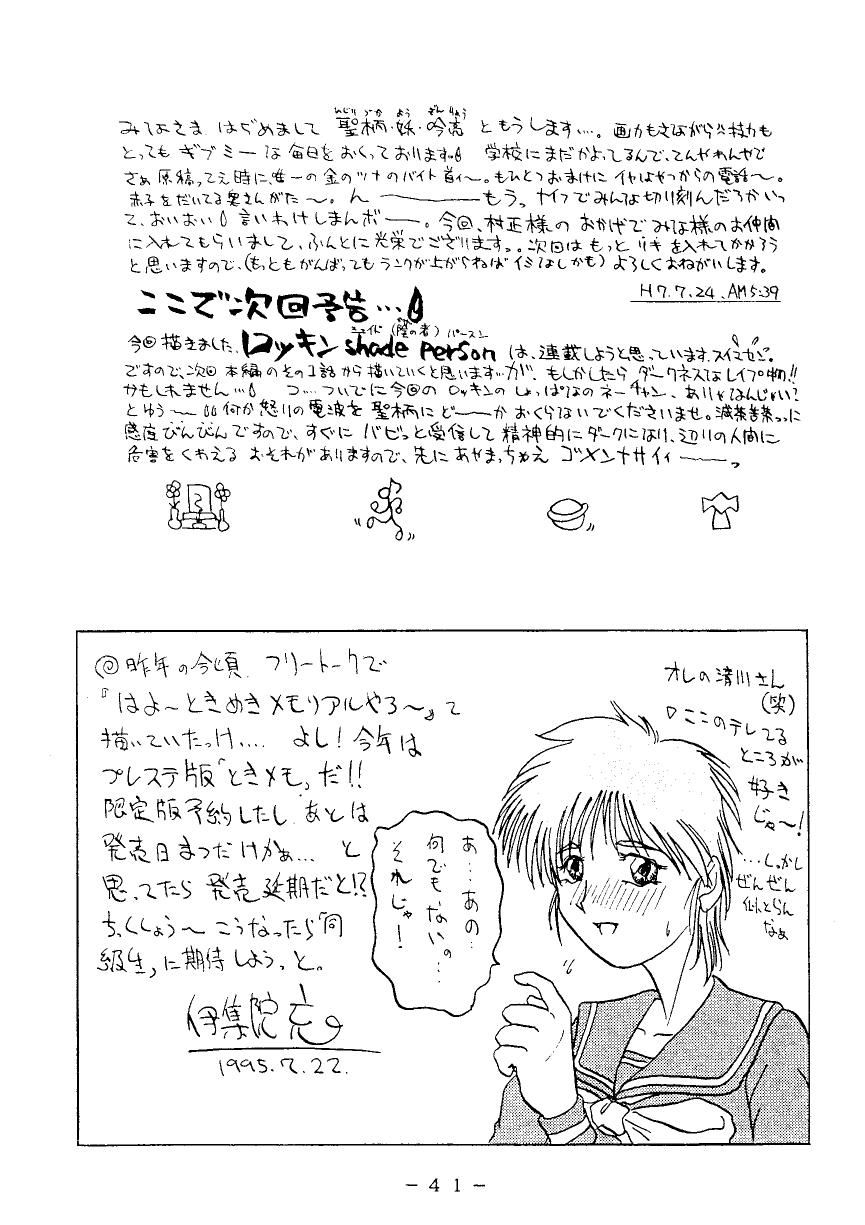 ひじり づか よう ぎんりょう
みなさま はぢめまして 聖柄・妖・吟亮 ともうします…。画力もさながら体力も
とっても ギブミーな毎日をおくっております。 学校にまだかよってるんで、てんやわんやで
さぁ原稿ってえ時に、唯一の金のツナのバイト首ィ〜。もひとつおまけに イヤなやつからの電話〜。
赤子をだいてる奥さんがた〜。ん――――もうっ ナイフでみんな切り刻んだろかいっ
て、おいおい 言いわけしまんボ――。今回、村正様の おかげで みな様のお仲間
に入れてもらいまして、ふんとに光栄でございますっ。次回は もっと リキを入れてかかろう
と思いますので、(もっともがんばっても ランクが上がらねば イミなしかも) よろしくおねがいします。
H7.7.24.AM5:39
ここで次回予告…
シェイド(陰の者) パースン
今回描きました、ロッキン shade person は、連載しようと思っています。スイマセン。
ですので、次回 本編のその1話から描いていくと思います…が、もしかしたら ダークネスなレイプ物!!
かもしれません… つ…ついでに今回の ロッキンの しょっぱなのネーチャン、ありゃなんじゃい?
とゆう〜 何か怒りの電波を聖柄にど――か おくらないでくださいませ。滅茶苦茶っに
感度びんびんですので、すぐに バビッと受信して 精神的にダークになり、辺りの人間に
危害をくわえる おそれがありますので、先にあやまっちゃえ ゴメンナサイィ――っ
◎昨年の今頃 フリートークで
『はよ〜ときめきメモリアルやろ〜』って
描いていたっけ.... よし!今年は
プレステ版「ときメモ」だ!!
限定版予約したし あとは
発売日まつだけかぁ... と
思ってたら 発売延期だと!?
ちっくしょう〜 こうなったら「同
級生」に期待しようっと。
伊集院 充
1995.7.22.
オレの清川さん
(笑)
ここのテレてる
ところが
好き
じゃ〜!
…しかし
ぜんぜん
似とらん
なぁ
あ…あの…
何でもないの…
それじゃ!
- 4 1 -